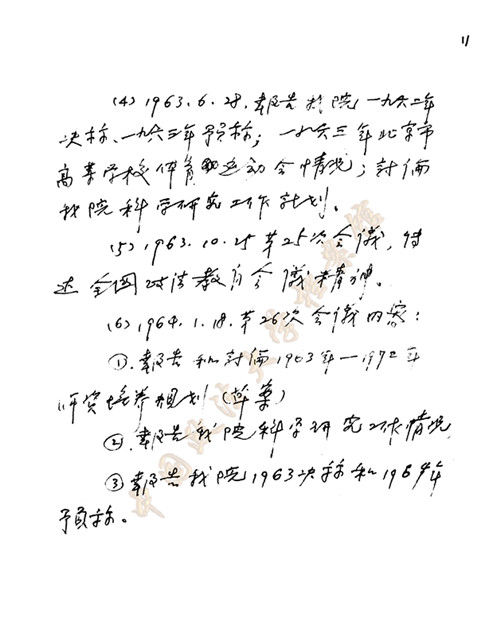 11
(4) 1963.6.28.報告我院一九六二年
决标、一九六三年予标；一九六三年北京市
高等学校体育运动会情况；討倫
我院科学研究工作計划。
(5) 1963.10.25第25次会議，传
达全国政法教育会議精神。
(6) 1964.1.18.第26次会議内容：
①.報告和討倫1963年—1972年
师资培养规划（草案）
②.報告我院科学研究工作情况
③報告我院1963决标和1964年
予标。
中国政法大学档案馆